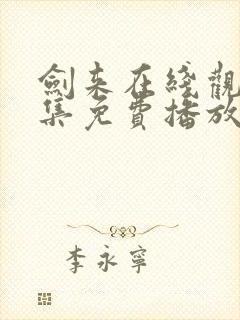 劍來在綫觀
集免費播放
李永寧